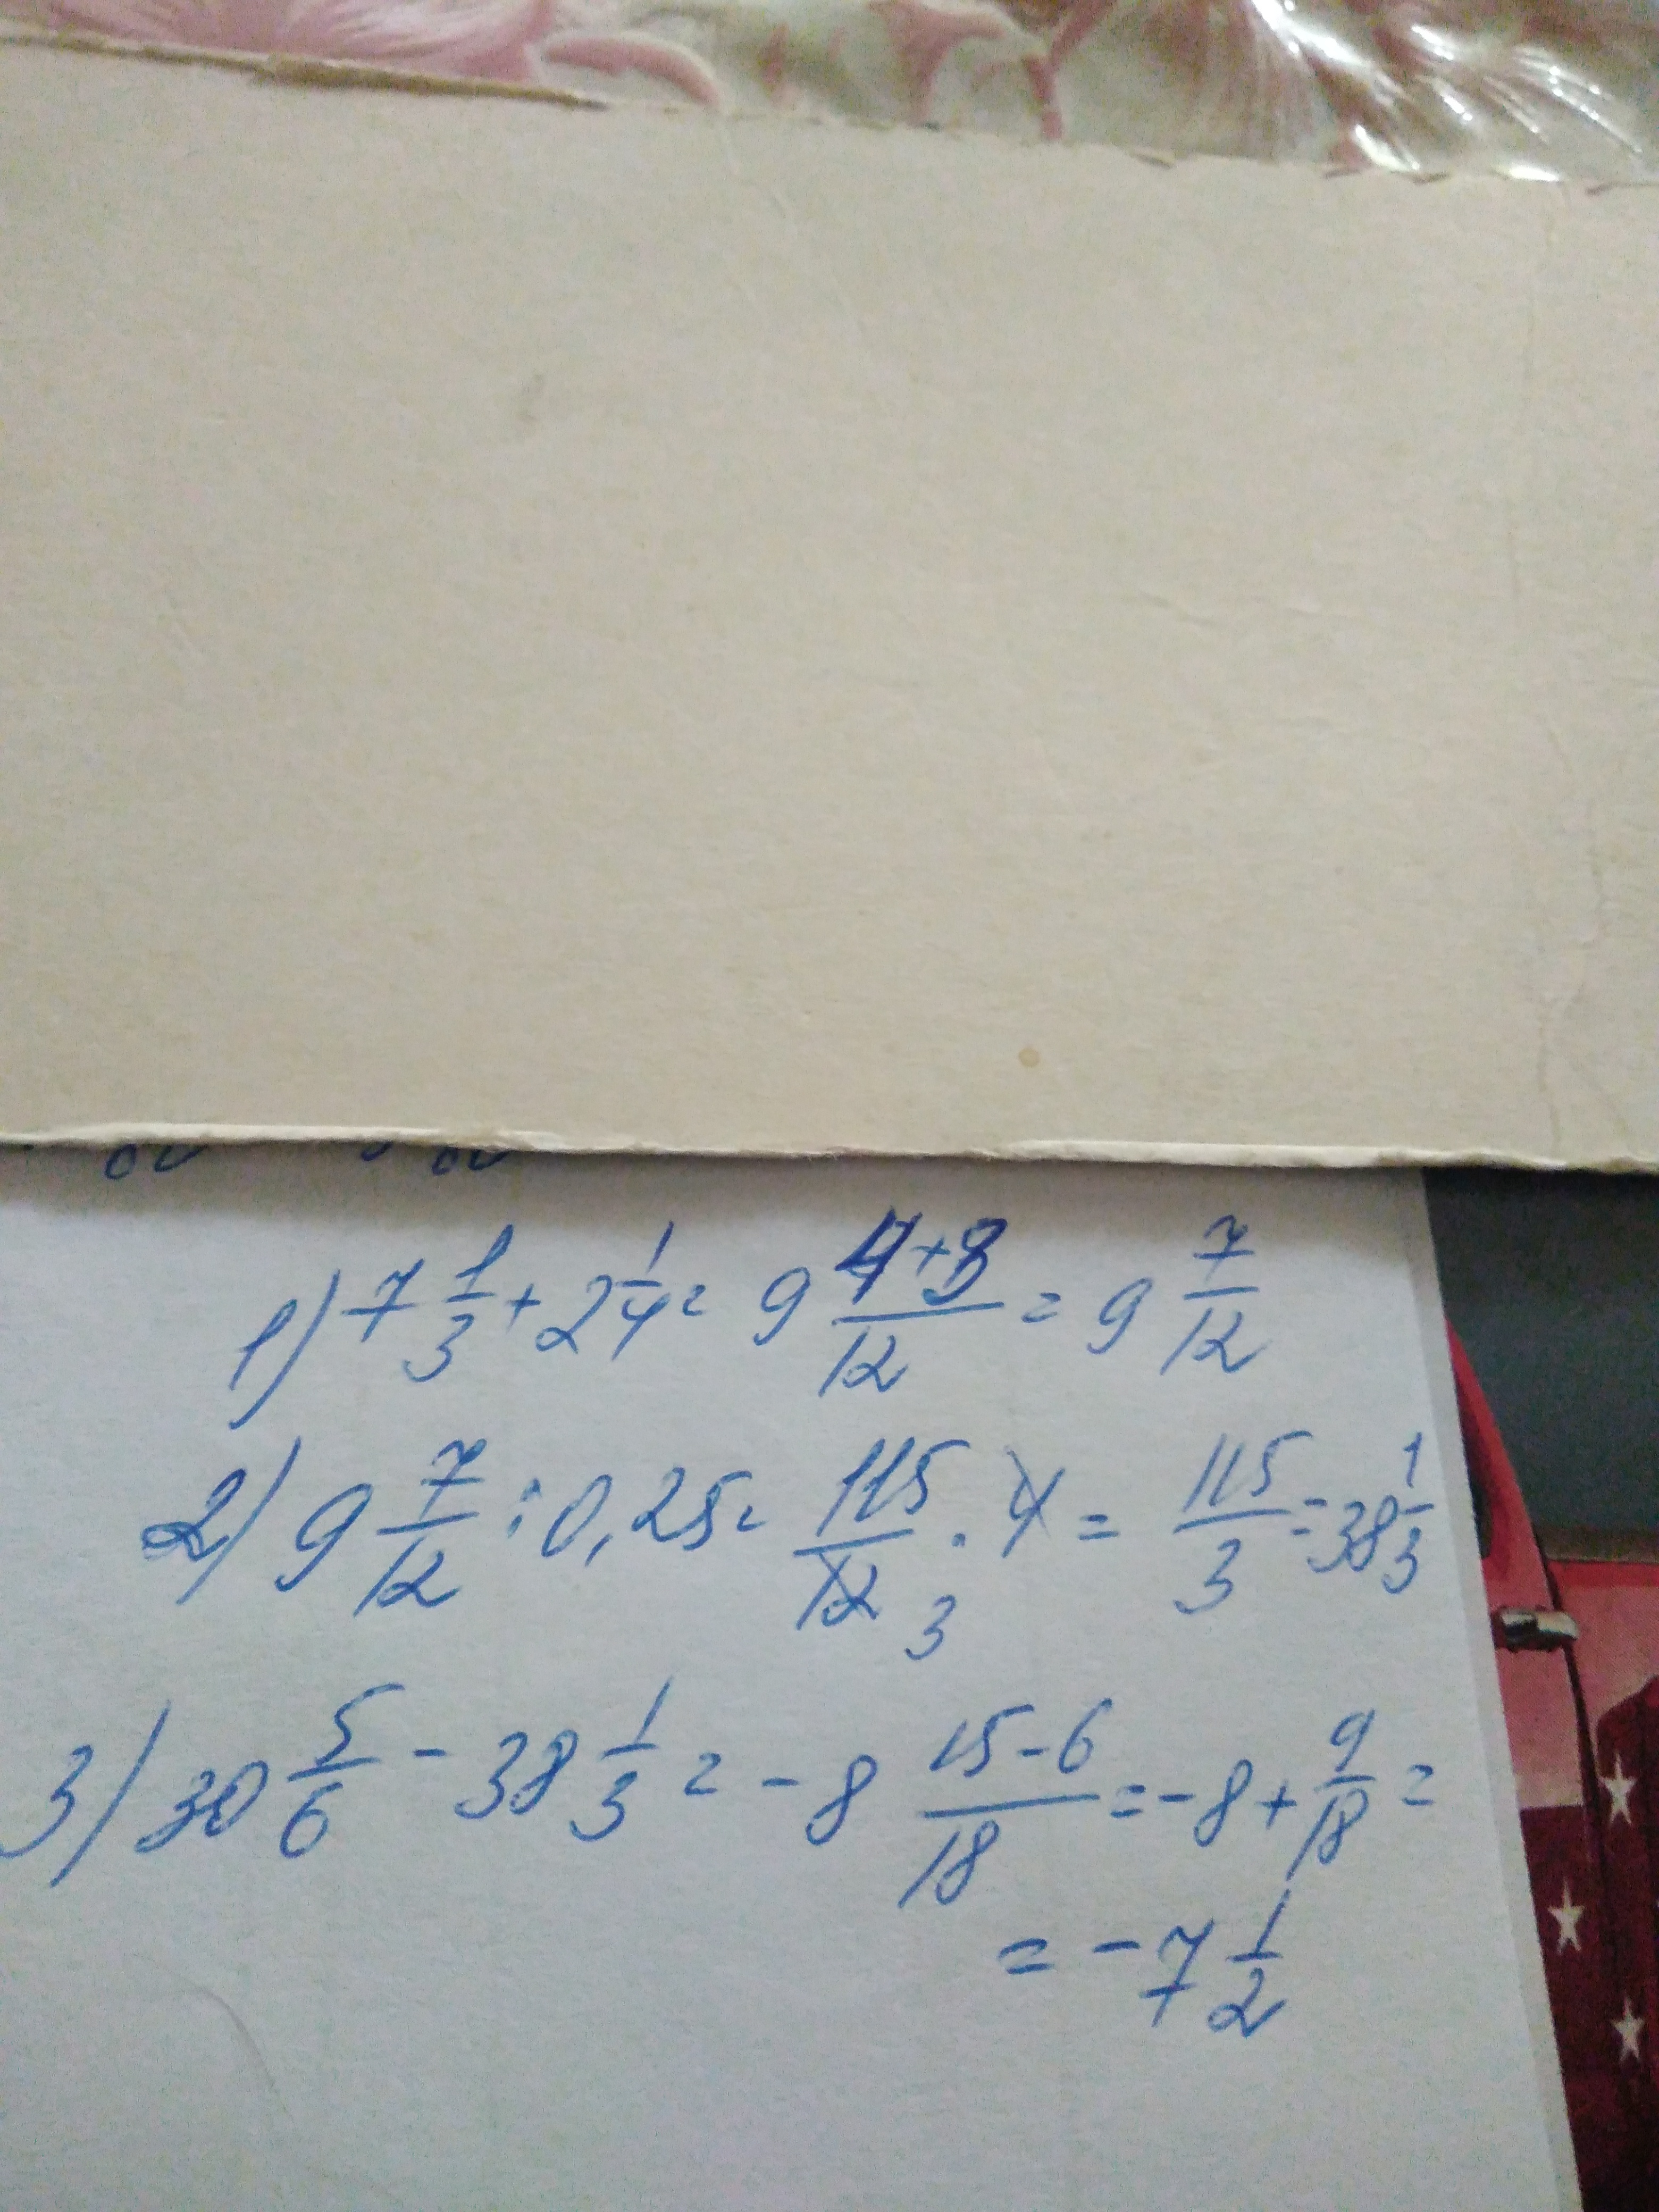 1) 7 1/3 + 2 1/4 = 9 (4+3)/12 = 9 7/12
2) 9 7/12 : 0,25 = 115/12 3 · 4 = 115/3 = 38 1/3
3) 30 5/6 - 38 1/3 = - 8 (15-6)/18 = - 8 + 9/18 =
= - 7 1/2